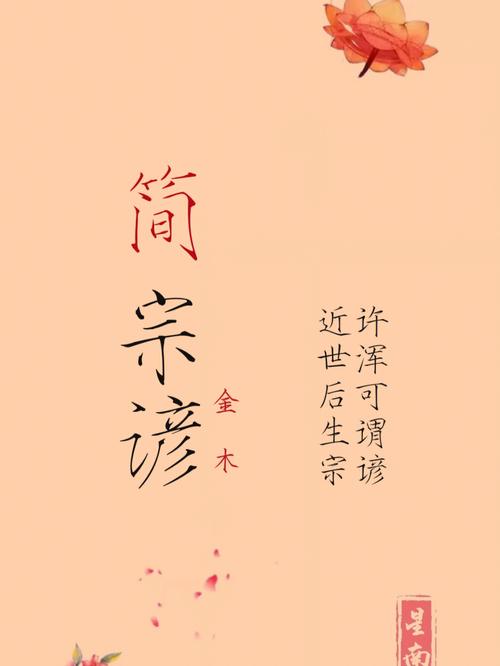 简宗谚
金木
近世后生宗
许浑可谓谚
星南